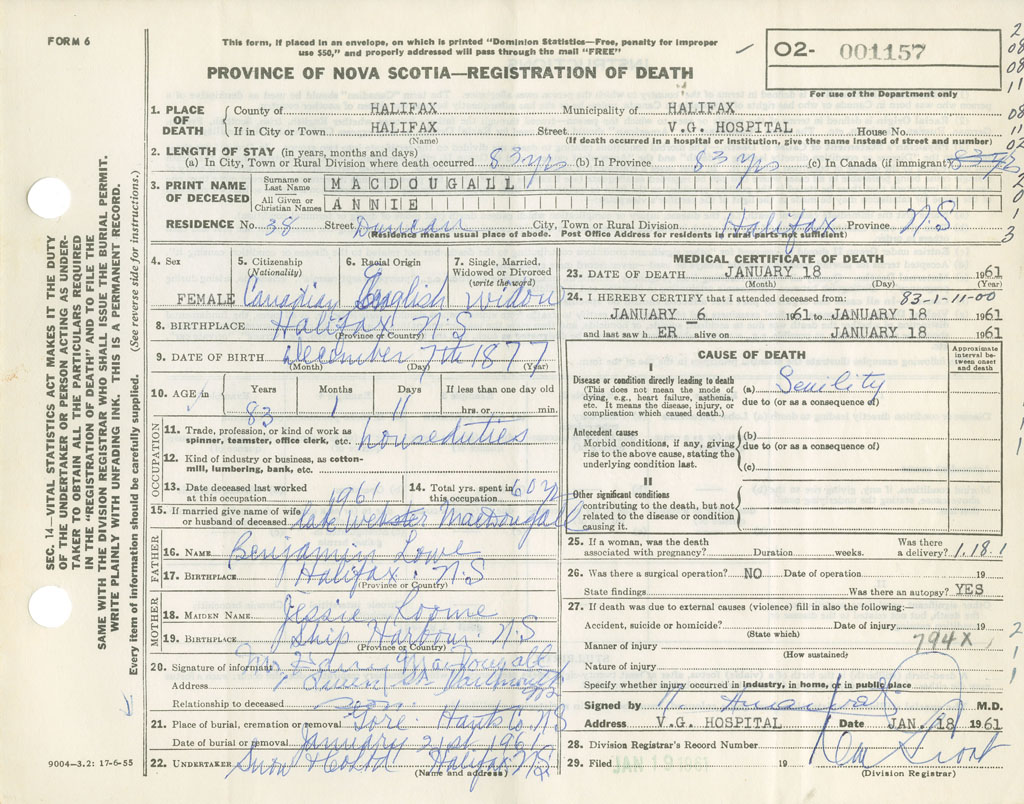 FORM 6
This form, if placed in an envelope, on which is printed "Dominion Statistics—Free, penalty for improper
use $50," and properly addressed will pass through the mail "FREE"
O2- 001157
For use of the Department only
PROVINCE OF NOVA SCOTIA—REGISTRATION OF DEATH
1. PLACE OF DEATH
County of HALIFAX Municipality of HALIFAX
If in City or Town HALIFAX Street V.G. HOSPITAL House No.
(Name) (If death occurred in a hospital or institution, give the name instead of street and number)
2. LENGTH OF STAY (in years, months and days)
(a) In City, Town or Rural Division where death occurred 83 yrs (b) In Province 83 yrs (c) In Canada (if immigrant) 83 yrs
3. PRINT NAME OF DECEASED
Surname or Last Name MACDOUGALL
All Given or Christian Names ANNIE
RESIDENCE No. 38 Street Duncan City, Town or Rural Division Halifax Province N.S
(Residence means usual place of abode. Post Office Address for residents in rural parts not sufficient)
4. Sex FEMALE
5. Citizenship (Nationality) Canadian
6. Racial Origin English
7. Single, Married, Widowed or Divorced (write the word) widow
8. BIRTHPLACE Halifax N.S
(Province or Country)
9. DATE OF BIRTH December 7th 1877
(Month) (Day) (Year)
10. AGE in Years 83 Months 1 Days 11 If less than one day old hrs. or min.
OCCUPATION
11. Trade, profession, or kind of work as spinner, teamster, office clerk, etc. houseduties
12. Kind of industry or business, as cotton-mill, lumbering, bank, etc.
13. Date deceased last worked at this occupation 1961
14. Total yrs. spent in this occupation 60 yrs
15. If married give name of wife or husband of deceased late Webster MacDougall
FATHER
16. NAME Benjamin Lowe
17. BIRTHPLACE Halifax N.S
(Province or Country)
MOTHER
18. MAIDEN NAME Jessie
19. BIRTHPLACE Ship Harbour N.S
(Province or Country)
20. Signature of informant MacDougall
Address Dartmouth NS
Relationship to deceased son
21. Place of burial, cremation or removal Gore Hants Co NS
Date of burial or removal January 21st 1961
22. UNDERTAKER Snow Halifax NS
(Name and address)
MEDICAL CERTIFICATE OF DEATH
23. DATE OF DEATH JANUARY 18 1961
(Month) (Day) (Year)
24. I HEREBY CERTIFY that I attended deceased from: 83-1-11-00
JANUARY 6 1961 to JANUARY 18 1961
and last saw h ER alive on JANUARY 18 1961
CAUSE OF DEATH
Approximate interval between onset and death
I
Disease or condition directly leading to death
(This does not mean the mode of dying, e.g., heart failure, asthenia, etc. It means the disease, injury, or complication which caused death.)
(a) Senility
due to (or as a consequence of)
Antecedent causes
Morbid conditions, if any, giving rise to the above cause, stating the underlying condition last.
(b)
due to (or as a consequence of)
(c)
II
Other significant conditions contributing to the death, but not related to the disease or condition causing it.
25. If a woman, was the death associated with pregnancy? Duration weeks. Was there a delivery? 1.18.1
26. Was there a surgical operation? NO Date of operation 19
State findings Was there an autopsy? YES
27. If death was due to external causes (violence) fill in also the following:—
Accident, suicide or homicide? Date of injury 19
(State which)
Manner of injury 794X
(How sustained)
Nature of injury
Specify whether injury occurred in industry, in home, or in public place
Signed by M.D.
Address V.G. HOSPITAL Date JAN. 18 1961
28. Division Registrar's Record Number
29. Filed JAN 19 1961 19
(Division Registrar)
SEC. 14—VITAL STATISTICS ACT MAKES IT THE DUTY
OF THE UNDERTAKER OR PERSON ACTING AS UNDER-
TAKER TO OBTAIN ALL THE PARTICULARS REQUIRED
IN THE "REGISTRATION OF DEATH" AND TO FILE THE
SAME WITH THE DIVISION REGISTRAR WHO SHALL ISSUE THE BURIAL PERMIT.
WRITE PLAINLY WITH UNFADING INK. THIS IS A PERMANENT RECORD.
Every item of information should be carefully supplied. (See reverse side for instructions.)
9004—3.2: 17-6-55